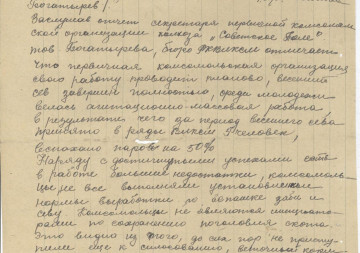 Богатырев/
Заслушав отчет секретаря первичной комсомоль
ской организации колхоза "Советское Поле"
тов Богатырева, бюро РК ВЛКСМ отмечает
что первичная комсомольская организация
свою работу проводит планово, весенний
сев завершен полностью, среди молодежи
велась агитационно-массовая работа
в результате чего за период весеннего сева
принято в ряды ВЛКСМ 7 человек,
вспахано паров на 50%
Наряду с достигнутыми успехами есть
в работе большие недостатки, комсомоль-
цы не все выполняли установленные
нормы выработки
силу Комсомольцы не являются инициато-
рами по сохранению поголовия скота
Это видно из того, до сих пор не присту-
пили еще к силосованию,